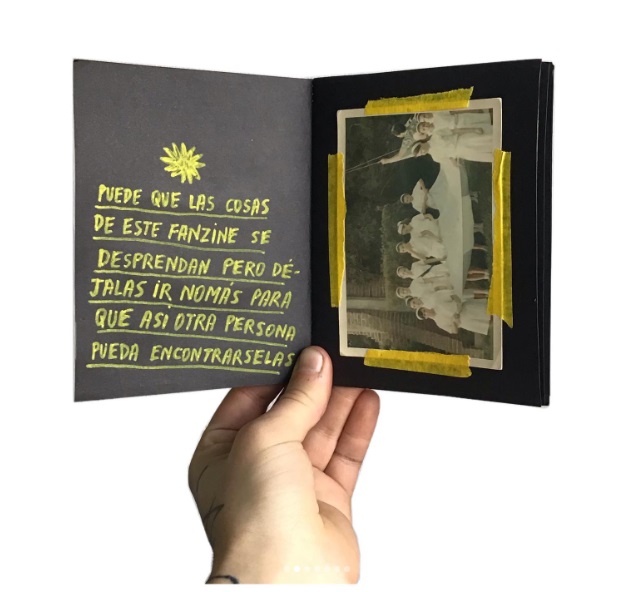 PUEDE QUE LAS COSAS
DE ESTE FANZINE SE
DESPRENDAN PERO DÉ-
JALAS IR NOMÁS PARA
QUE ASI OTRA PERSONA
PUEDA ENCONTRARSELAS